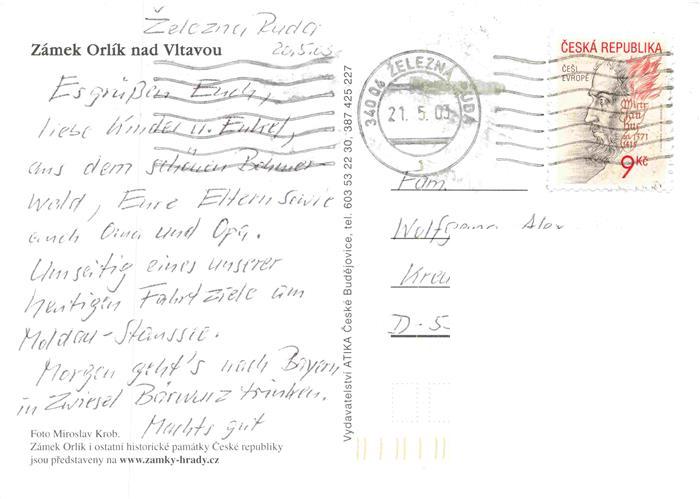 Železna Ruda
20.5.03
Zámek Orlík nad Vltavou
Es grüßen Euch,
liebe Kinder u. Enkel,
aus dem schönen Böhmer-
wald, Eure Eltern sowie
auch Oma und Opa.
Umseitig eines unserer
heutigen Fahrtziele am
Moldau-Staussee.
Morgen geht's nach Bayern
in Zwiesel Bärwurz trinken.
Machts gut
Foto Miroslav Krob.
Zámek Orlík i ostatní historické památky České republiky
jsou představeny na www.zamky-hrady.cz
Vydavatelství ATIKA České Budějovice, tel. 603 53 22 30, 387 425 227
340 04 ŽELEZNÁ RUDA
21.5.03
ČESKÁ REPUBLIKA
ČEŠI
EVROPĚ
9 Kč
Fam.
Wolfgang Alex
Kreu
D-5